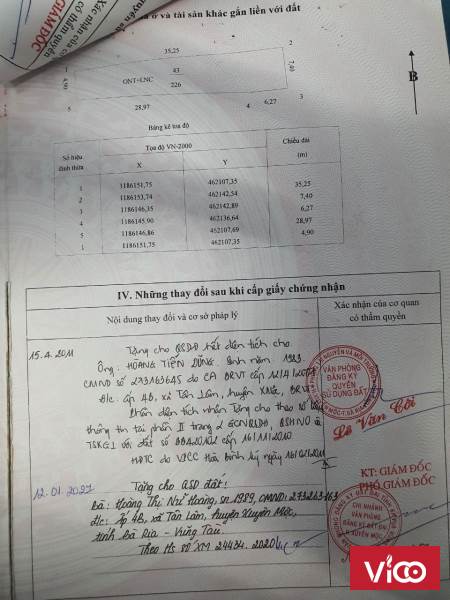 ở và tài sản khác gắn liền với đất
Xác nhận của cơ
có thẩm quyền
GIÁM ĐỐC
35,25
1
2
43
ONT+LNC
226
4,90
7,40
B
5
28,97
4
6,27
3
Bảng kê toạ độ
Số hiệu đỉnh thửa
Toạ độ VN-2000
Chiều dài (m)
X
Y
1 1186151,75 462107,35 35,25
2 1186153,74 462142,54 7,40
3 1186146,35 462142,89 6,27
4 1186145,90 462136,64 28,97
5 1186146,86 462107,69 4,90
1 1186151,75 462107,35
IV. Những thay đổi sau khi cấp giấy chứng nhận
Nội dung thay đổi và cơ sở pháp lý
Xác nhận của cơ quan
có thẩm quyền
15.4.2011
Tặng cho QSDĐ hết diện tích cho
Ông. HOÀNG TIẾN DŨNG. Sinh năm
CMND số 273163645 do CA BRVT cấp
Đ/c. ấp 4B, xã Tân Lâm, huyện
nhận Tặng cho theo số
thông tin tại phần II trang 2 GCNQSDĐ, QSHNO và
TSKGL với đất số cấp 16/11/2010
HĐTC do VPCC Hòa Bình ký ngày
VĂN PHÒNG
ĐĂNG KÝ
QUYỀN
SỬ DỤNG ĐẤT
Lê Văn Cời
12.01.2021
Tặng cho QSD đất:
bà: Hoàng Thị Như Hoang, sn 1989, CMND: 273263463
Đ/c: Ấp 4B, xã Tân Lâm, huyện Xuyên Mộc,
tỉnh Bà Rịa - Vũng Tàu.
Theo Hs số XM 24434.2020
KT: GIÁM ĐỐC
PHÓ GIÁM ĐỐC
CHI NHÁNH
VĂN PHÒNG
ĐĂNG KÝ ĐẤT ĐAI
H.XUYÊN MỘC
Vico